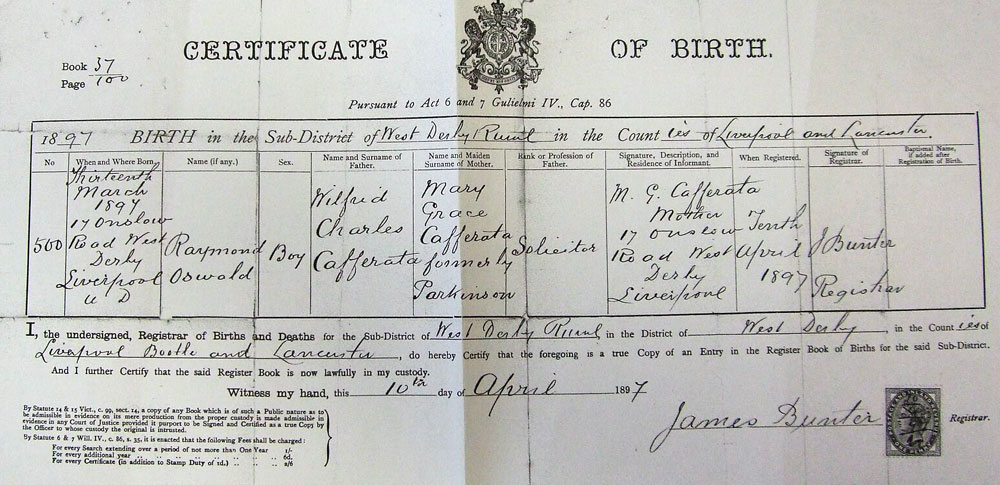 CERTIFICATE OF BIRTH.
Book 37
Page 100
Pursuant to Act 6 and 7 Gulielmi IV., Cap. 86
1897 BIRTH in the Sub-District of West Derby Rural in the Counties of Liverpool and Lancaster.
No
When and Where Born.
Name (if any.)
Sex.
Name and Surname of
Father.
Name and Maiden
Surname of Mother.
Rank or Profession of
Father.
Signature, Description, and
Residence of Informant.
When Registered.
Signature of
Registrar.
Baptismal Name,
if added after
Registration of Birth.
500
Thirteenth
March
1897
17 Onslow
Road West
Derby
Liverpool
U D
Raymond
Oswald
Boy
Wilfrid
Charles
Cafferata
Mary
Grace
Cafferata
formerly
Parkinson
Solicitor
M. G. Cafferata
Mother
17 Onslow
Road West
Derby
Liverpool
Tenth
April
1897
J Bunter
Registrar
I, the undersigned, Registrar of Births and Deaths for the Sub-District of West Derby Rural, in the District of West Derby, in the Counties of
Liverpool Bootle and Lancaster, do hereby Certify that the foregoing is a true Copy of an Entry in the Register Book of Births for the said Sub-District.
And I further Certify that the said Register Book is now lawfully in my custody.
Witness my hand, this 10th day of April 1897
James Bunter Registrar.
By Statute 14 & 15 Vict., c. 99, sect. 14, a copy of any Book which is of such a Public nature as to
be admissible in evidence on its mere production from the proper custody is made admissible in
evidence in any Court of Justice provided it purport to be Signed and Certified as a true Copy by
the Officer to whose custody the original is intrusted.
By Statute 6 & 7 Will. IV., c. 86, s. 35, it is enacted that the following Fees shall be charged:
For every Search extending over a period of not more than One Year 1/-
For every additional year .. .. .. .. .. .. 6d.
For every Certificate (in addition to Stamp Duty of 1d.) .. .. .. 2/6